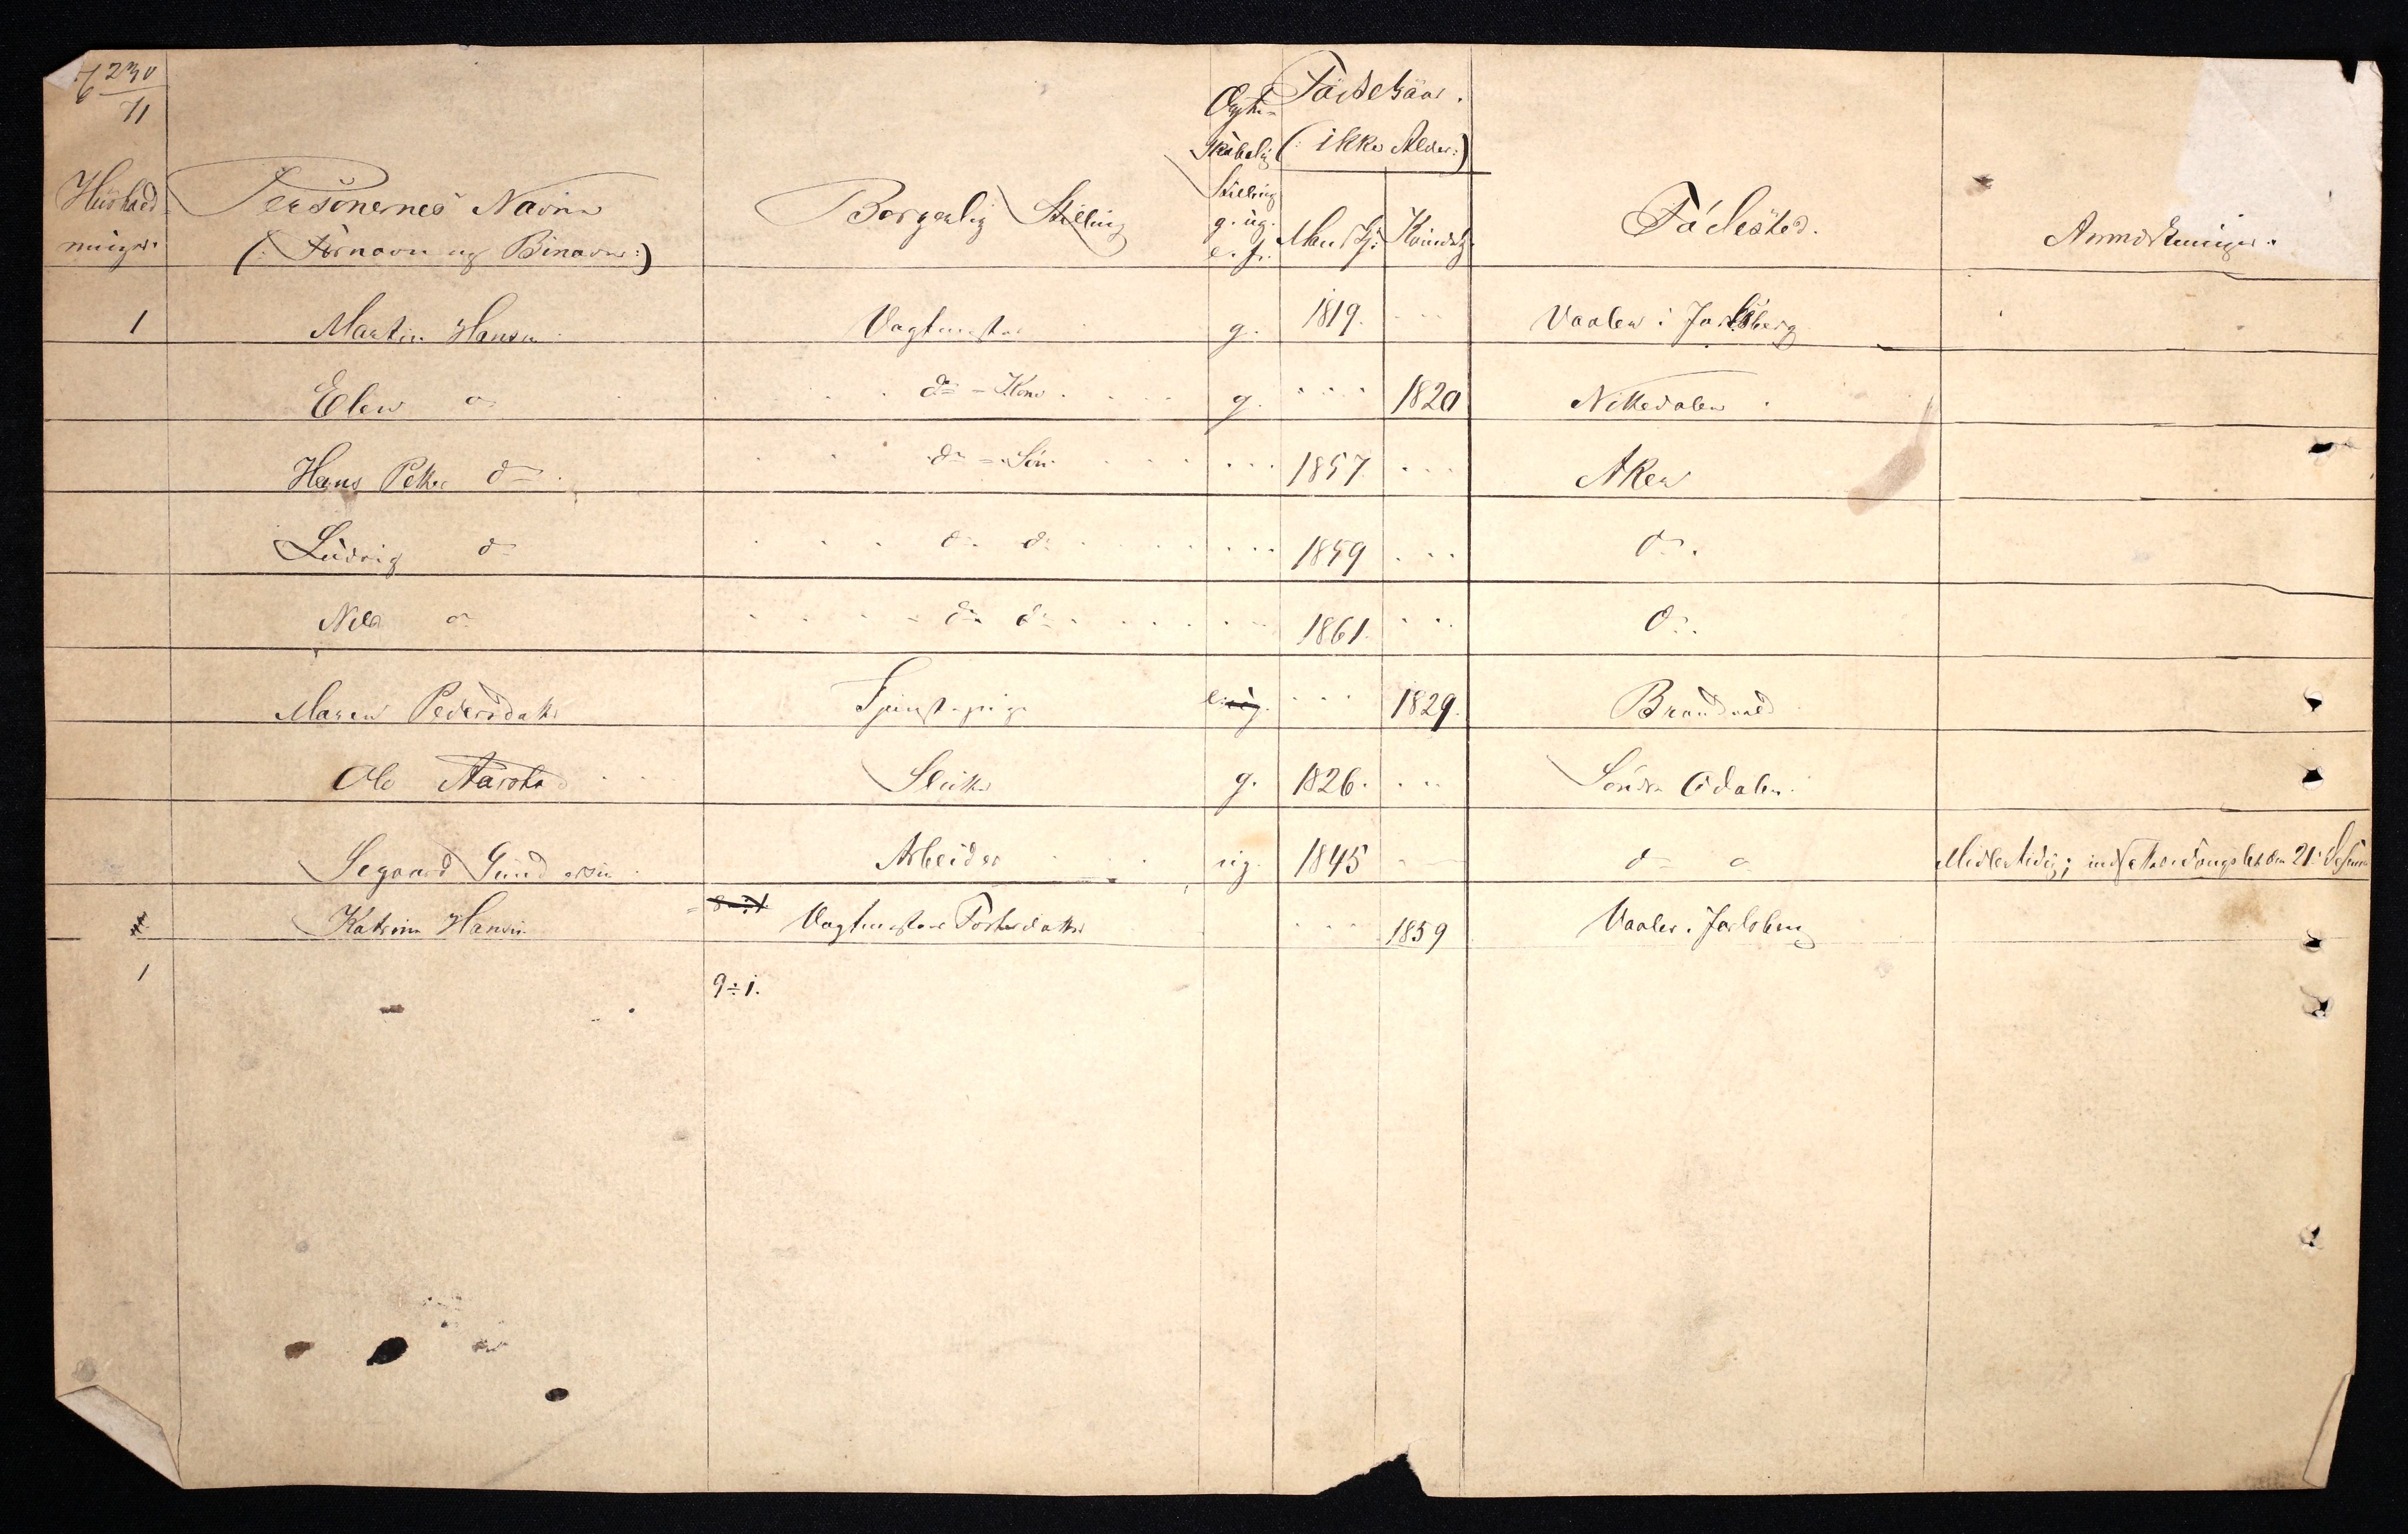 230
11
Husholdninger.
Personernes Navne
(: Fornavn og Binavn :)
Borgerlig Stilling
Ægteskabelig Stilling
g. ug. e. f.
Födselsaar.
(: ikke Alder :)
Mandkj: Kvindekj.
Födested.
Anmærkninger.
1 Martin Hansen Vagtmester g. 1819. Vaaler i Jarlsberg
Elen do do = Kone g. 1820 Nittedalen
Hans Petter do do = Sön 1857 Aker
Ludvig do do do 1859 do.
Nils do do do 1861. do.
Maren Pedersdatter Tjenestepige e. ug. 1829. Brandvold
Ole Aarstad Slutter g. 1826. Söndre Odalen
Segaard Gundersen Arbeider ug. 1845 do do Midlertidig; indsat
Katrine Hansen 8÷1 Vagtmesterens Fosterdatter 1859 Vaaler i Jarlsberg
1 9÷1.